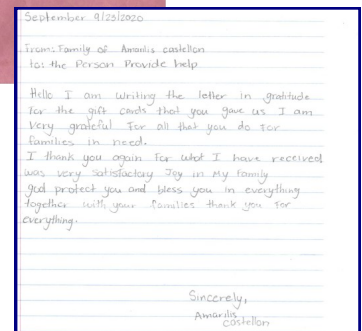 September 9/23/2020
From: Family of Amarilis castellon
to: the Person Provide help
Hello I am writing the letter in gratitude
For the gift cards that you gave us I am
very grateful For all that you do For
families in need.
I thank you again For what I have received
was very satisfactory Joy in My family
god protect you and bless you in everything
together with your families thank you For
everything.
Sincerely,
Amarilis
castellon